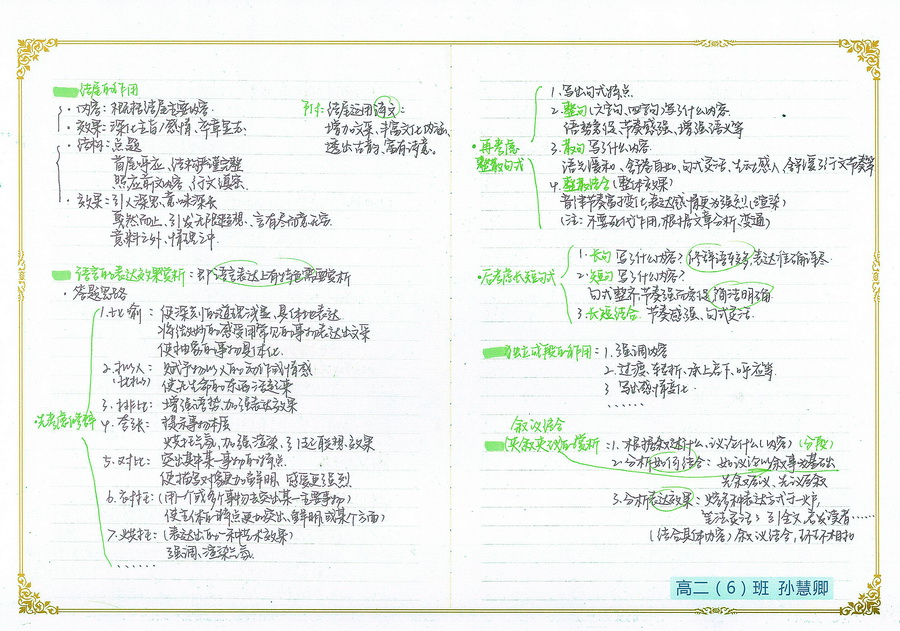 结尾的作用
· 内容：根据结尾主要内容
· 效果：深化主旨/感情、卒章显志
· 结构：点题
首尾呼应、结构严谨完整
照应前文内容、行文缜密
· 效果：引人深思、意味深长
戛然而止、引发无限遐想、言有尽而意无穷
意料之外、情理之中
附：结尾运用诗文：
增加文采、丰富文化内涵、
透出古韵、富有诗意。
语言的表达效果赏析：即语言表达上有特色需要赏析
· 答题思路
· 先考虑修辞
1. 比喻：使深刻的道理浅显、具体的表达
将微妙的感受用常见的事物表达出来
使抽象的事物具体化.
2. 拟人：赋予物以人的动作或情感
（比拟）使无生命的东西活起来
3. 排比：增强语势、加强表达效果
4. 夸张：揭示事物本质
烘托气氛、加强渲染、引起联想效果
5. 对比：突出某事某一事物的特点.
使描写对象更加鲜明、感受更强烈
6. 衬托：（用一个或多个事物去突出某一主要事物）
使主体的特点更加突出、鲜明（或某个方面）
7. 烘托：（表达出的一种艺术效果）
强调、渲染气氛.
......
· 再考虑
整散句式
1. 写出句式特点.
2. 整句（六字句、四字句）写了什么内容.
语势紧促、节奏感强、增强语义等
3. 散句 写了什么内容.
语气缓和、舒卷自如、句式灵活、生动感人
4. 整散结合（整体效果）
音律节奏富于变化、表达感情更为强烈（渲染）
（注：不要死代作用，根据文章分析、变通）
· 后考虑长短句式
1. 长句 写了什么内容？修辞语较多，表达准确详尽.
2. 短句 写了什么内容？
句式整齐、节奏强而紧促、简洁明确
3. 长短结合. 节奏感强、句式灵活.
独立成段的作用：1. 强调内容
2. 过渡、转折、承上启下、呼应等
3. 写出感情变化.
......
叙议结合
（夹叙夹议）的赏析：1. 根据叙述什么、议论什么（内容）（分段）
2. 分析如何结合：如议论以叙事为基础
先叙后议、先议后叙
3. 分析表达效果：将多种表达方式于一炉，
笔法灵活；引全文、启发读者……
（结合具体内容）叙议结合，环环相扣
高二（6）班 孙慧卿